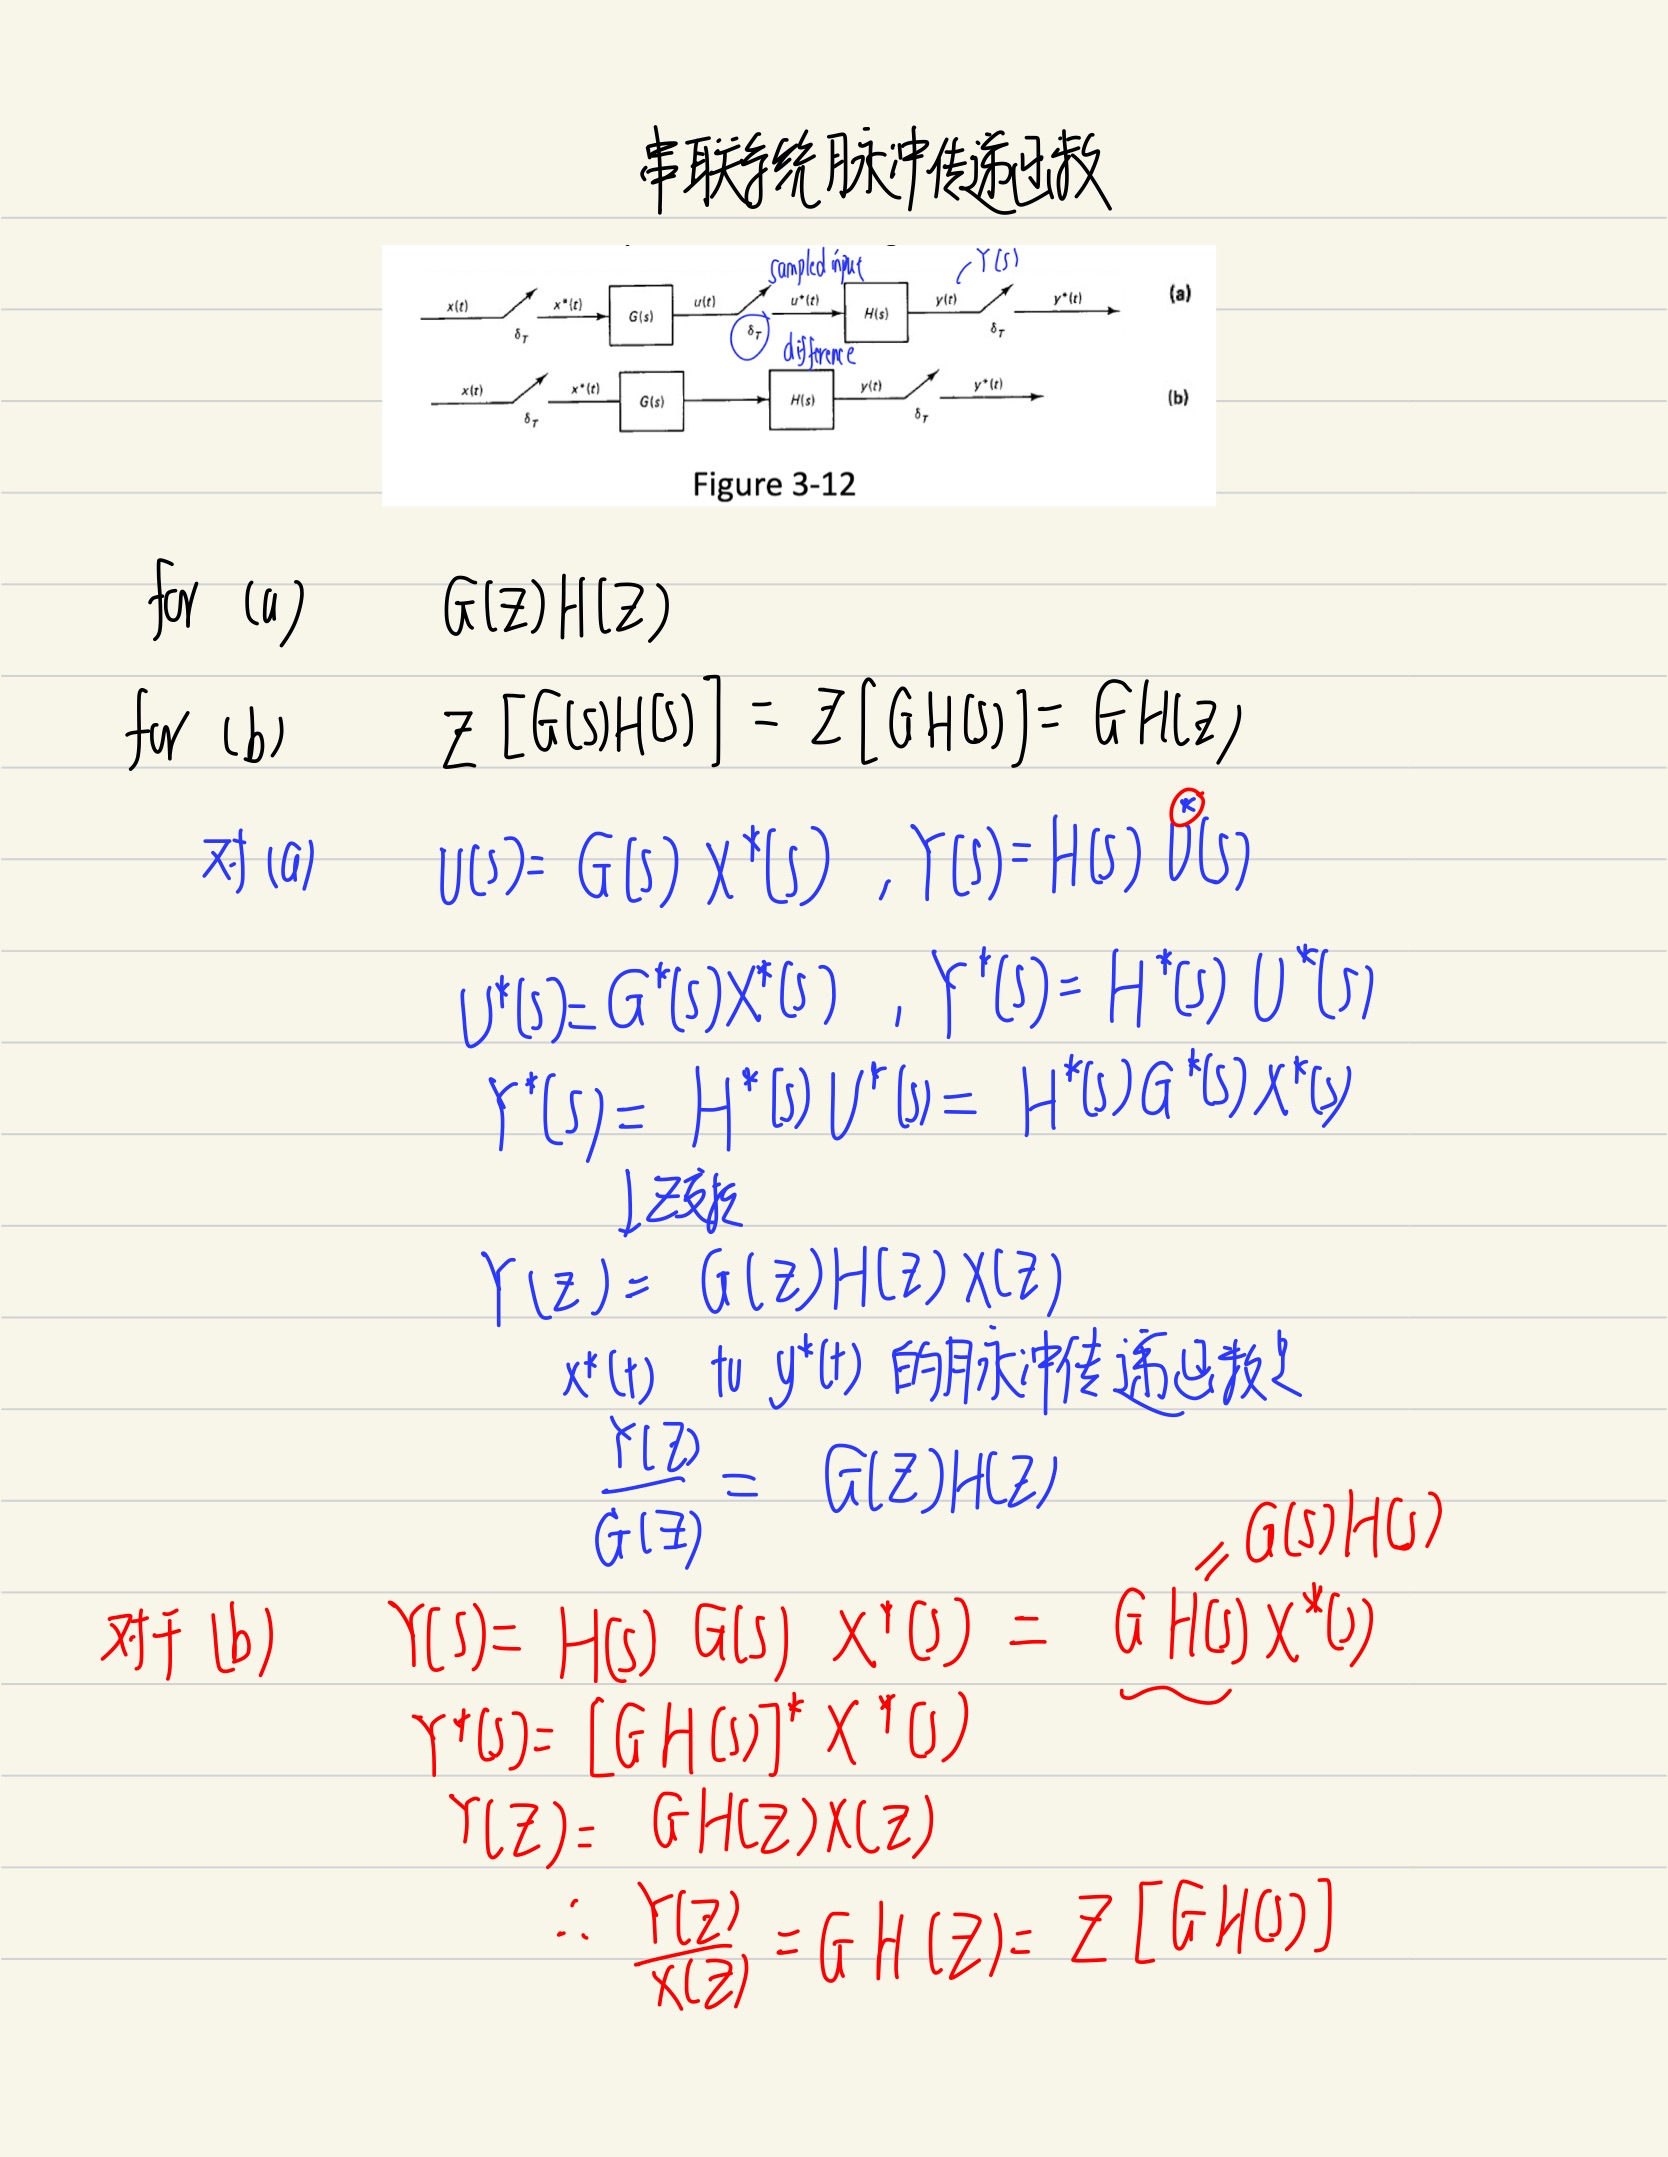 串联系统脉冲传递函数
sampled input Y(s)
x(t) δT x*(t) G(s) u(t) δT u*(t) H(s) y(t) δT y*(t) (a)
difference
x(t) δT x*(t) G(s) H(s) y(t) δT y*(t) (b)
Figure 3-12
for (a) G(Z)H(Z)
for (b) Z[G(s)H(s)] = Z[GH(s)] = GH(z)
对(a) U(s)= G(s) X*(s) , Y(s)= H(s) U*(s)
U*(s)= G*(s)X*(s) , Y*(s)= H*(s) U*(s)
Y*(s)= H*(s)U*(s)= H*(s)G*(s)X*(s)
↓Z变换
Y(Z)= G(Z)H(Z)X(Z)
x*(t) to y*(t) 的脉冲传递函数是
Y(Z)/G(Z) = G(Z)H(Z)
= G(s)H(s)
对于(b) Y(s)= H(s) G(s) X*(s) = GH(s)X*(s)
Y*(s)= [GH(s)]* X*(s)
Y(Z)= GH(Z)X(Z)
∴ Y(Z)/X(Z) = GH(Z)= Z[GH(s)]